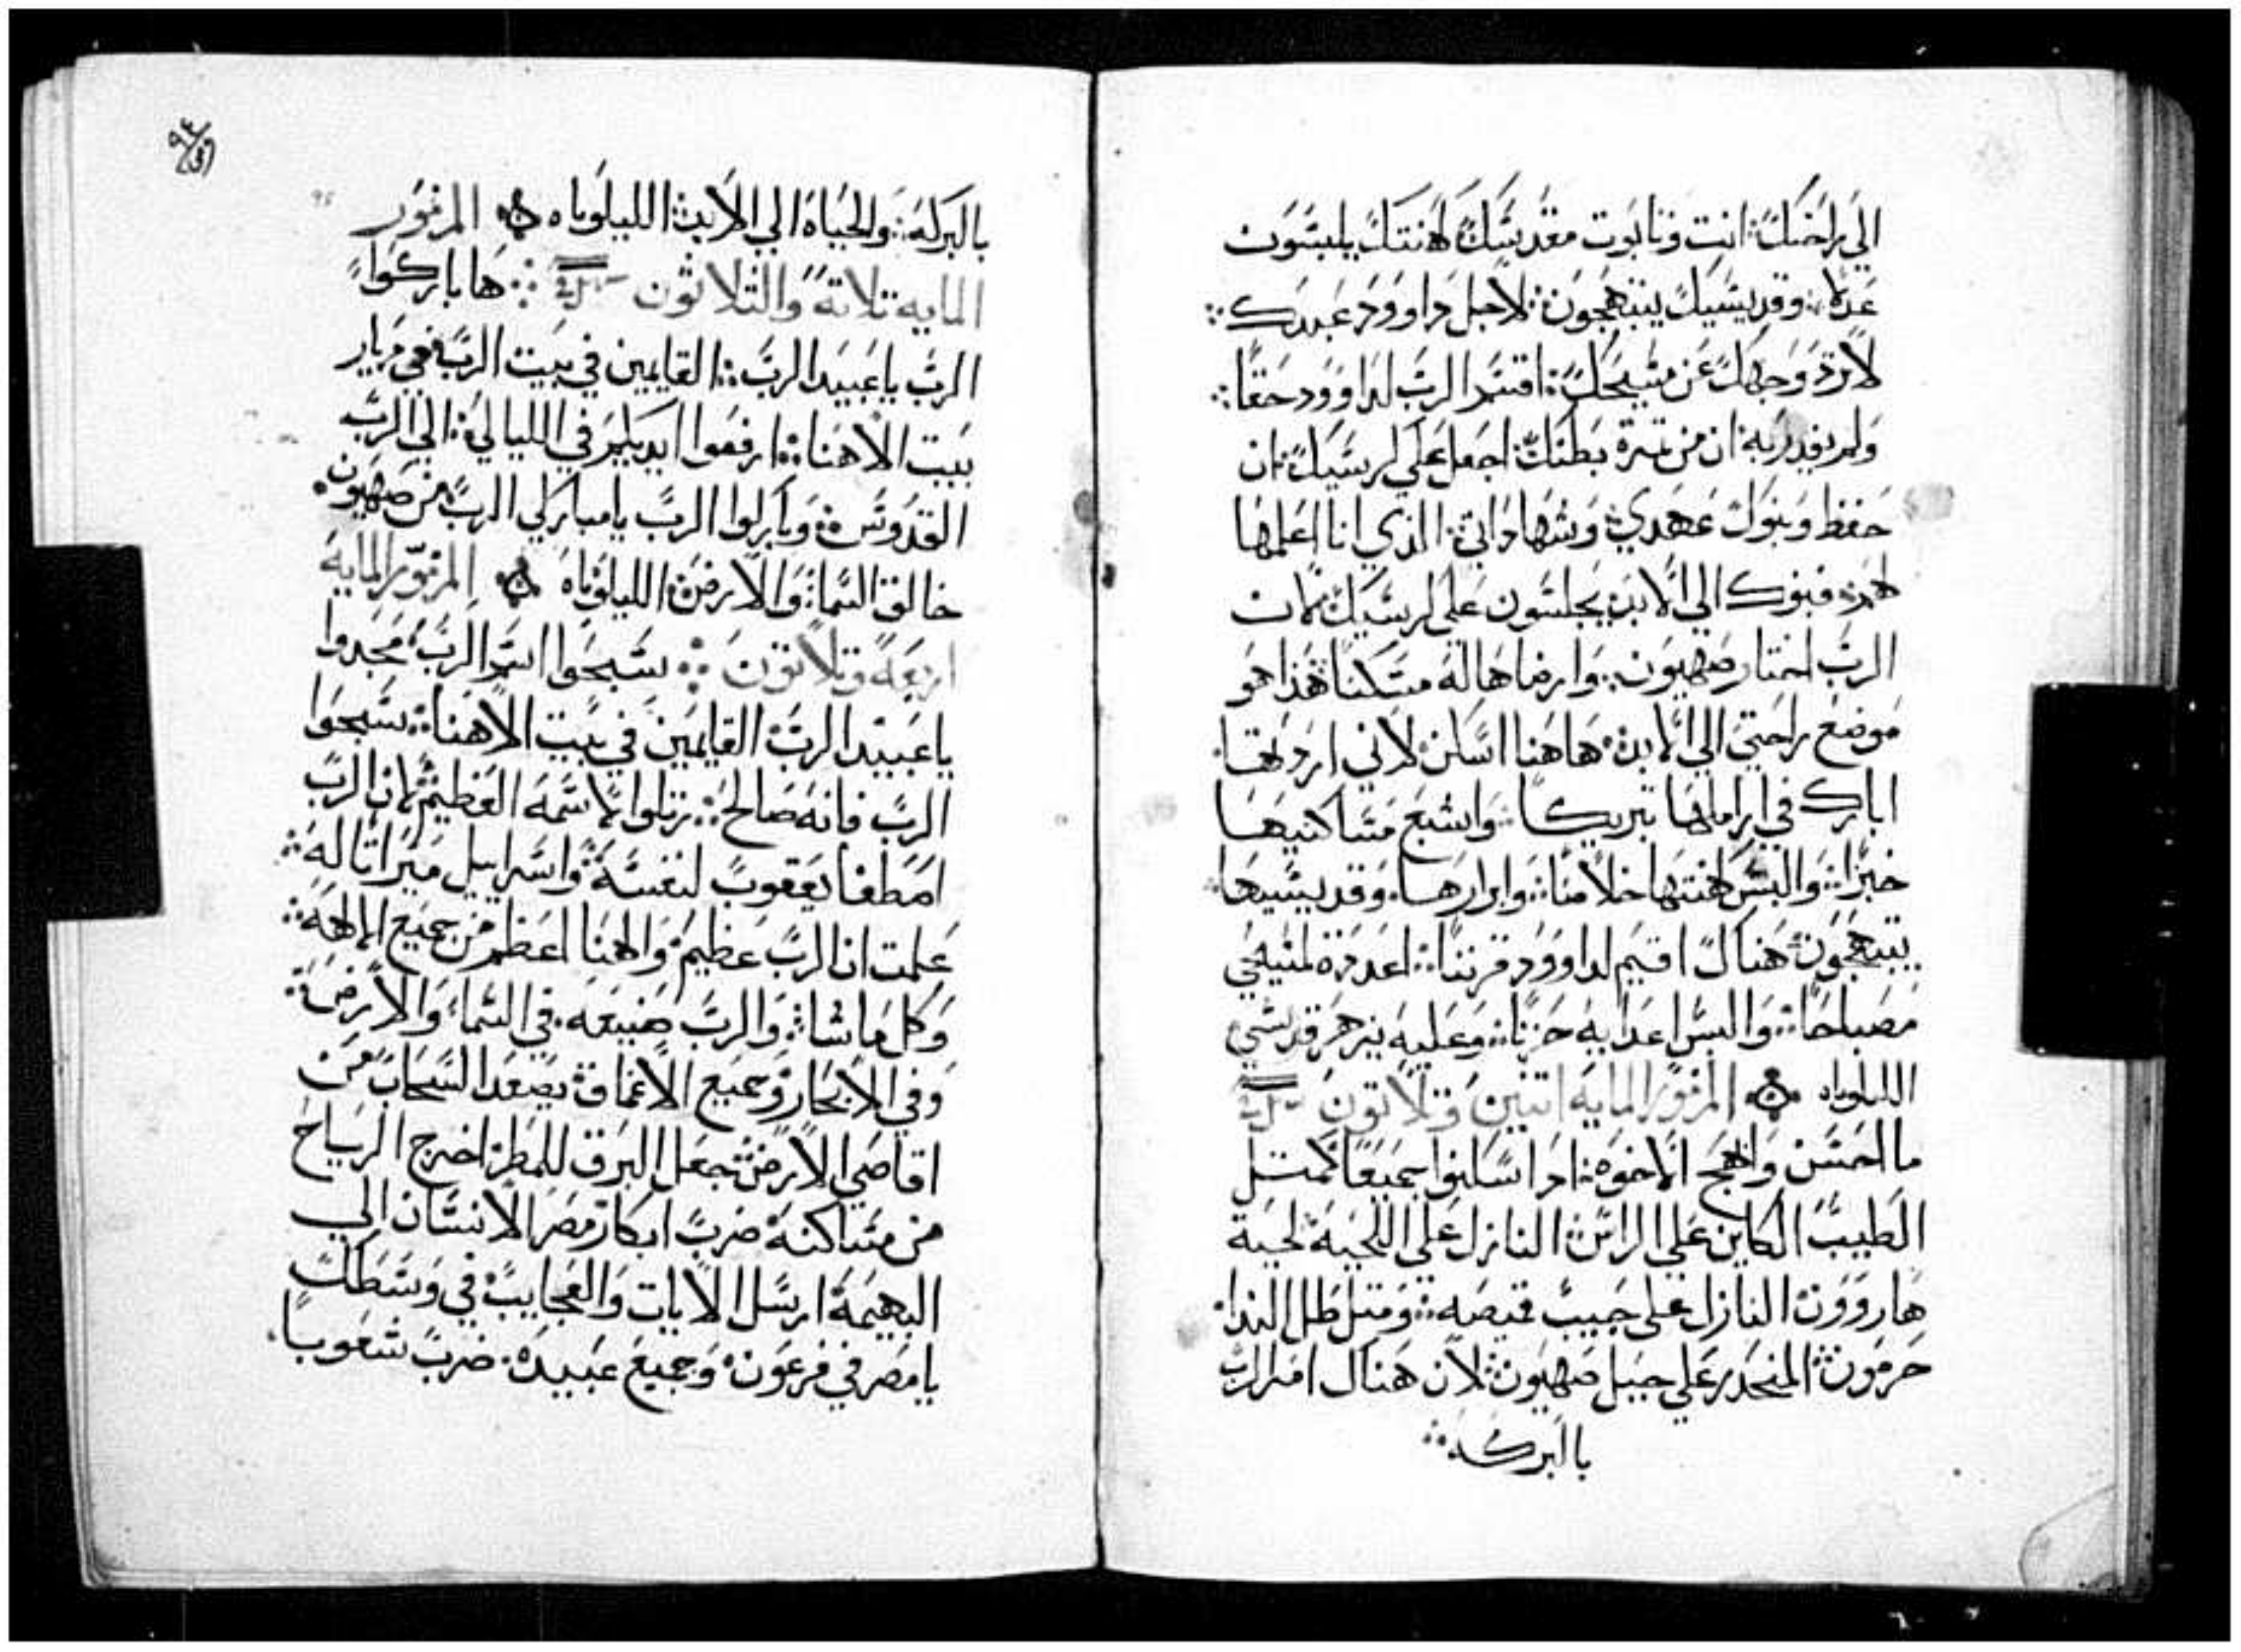 الي راحتك: انت وتابوت مقدسك كهنتك يلبسون
عدلا: وقديسيك يبتهجون: لاجل داوود عبدك:
لا ترد وجهك عن مسيحك: اقسم الرب لداوود حقا:
ولم يغدر به: ان من تمرة بطنك: اجعل علي كرسيك: ان
حفظ وبنوك عهدي: وشهاداتي: الذي انا اعلمها
لهم: فبنوك الي الابد: يجلسون علي كرسيك: لان
الرب اختار صهيون: وارضاها له مسكنا: هذا هو
موضع راحتي الي الابد: هاهنا اسكن لاني اردتها:
ابارك في اراملها تبريكا: واشبع مساكنيها
خبزا: والبس كهنتها خلاصا: وابرارها: وقديسيها
يبتهجون: هناك اقيم لداوود قرننا: اعددة لمسيحي
مصباحا: والبس اعدايه حزنا: وعليه يزهر قدسي
الليلوياه ܀ المزمور المايه اتنين وتلاتون
ما احسن وابهج الاخوه: ادا اسكنوا جميعا كمتل
الطيب الكاين علي الراس: النازل علي اللحية لحية
هاروون: النازل علي جيب قميصه: ومتل طل الندا:
حرمون: المنحدر علي جبل صهيون: لان هناك امر الرب
باالبركة:
٩٤
بالبركة: والحياة الي الابد: الليلوياه ܀ المزمور
المايه تلاتة والثلاثون : ها باركوا
الرب ياعبيد الرب: القايمين في بيت الرب: في ديار
بيت الاهنا: ارفعوا ايديكم في الليالي: الي الرب
القدوس: وباركوا الرب يامباركي الرب من صهيون:
خالق السما: والارض: الليلوياه ܀ المزمور المايه
اربعة وتلاتون : سبحوا اسم الرب: مجدوا
ياعبيد الرب: القايمين في بيت الاهنا: سبحوا
الرب فانه صالح: رتلوا لاسمه العظيم: لان الرب
اصطفا يعقوب لنفسة: واسراييل ميراتا له:
علمت ان الرب عظيم: والهنا اعظم من جميع الالهة:
وكل ما شا: والرب صنيعه: في السما: والارض:
وفي الابحار: وجميع الاعماق: يصعد السحاب من
اقاصي الارض: جعل البرق للمطر: اخرج الرياح
من مساكنة: ضرب ابكار مصر الانسان الي
البهيمة: ارسل الايات والعجايب: في وسطك
يامصر في فرعون: وجميع عبيده: ضرب شعوبا: